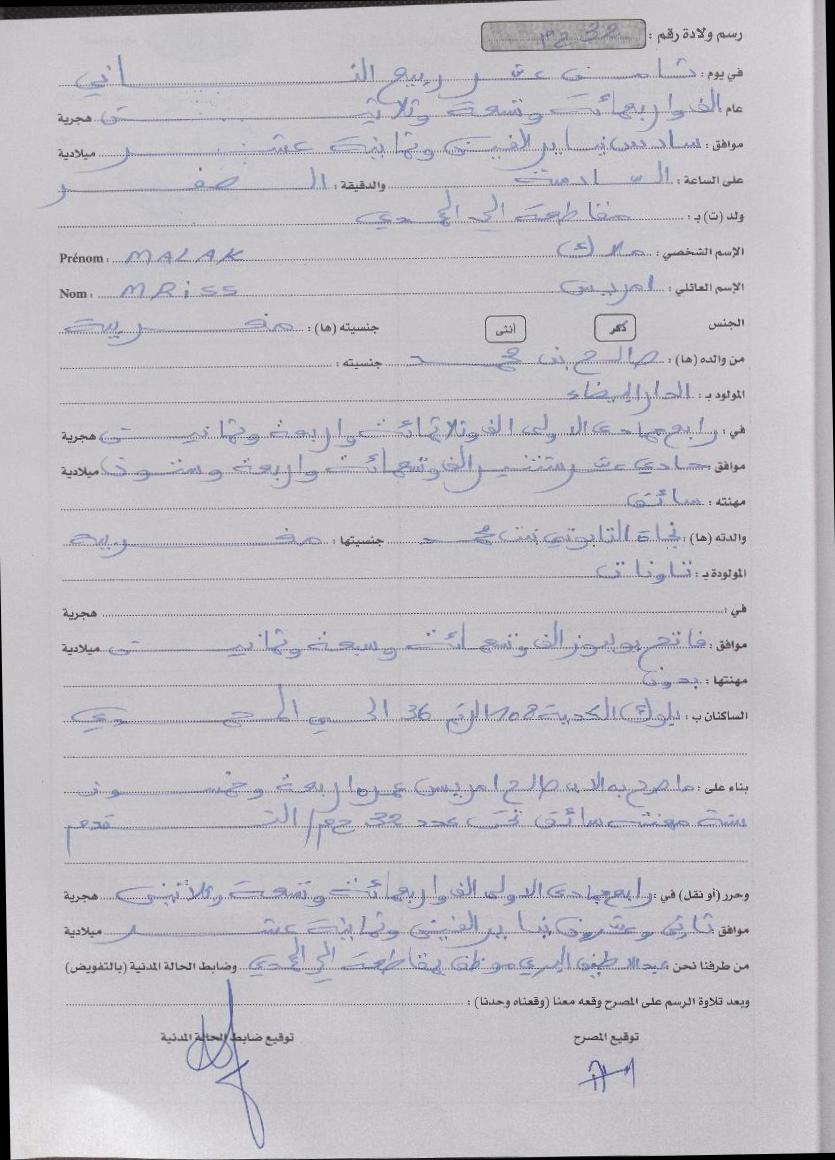 رسم ولادة رقم : 32 ح م
في يوم : ثامن عشر ربيع الثاني
عام الف واربعمائة وتسعة وثلاثين هجرية
موافق : سادس يناير الفين وثمانية عشر ميلادية
على الساعة : السادسة والدقيقة : الصفر
ولد (ت) بـ : مقاطعة الحي المحمدي
الإسم الشخصي : ملاك Prénom : MALAK
الإسم العائلي : امريس Nom : MRiSS
الجنس ذكر أنثى جنسيته (ها) : مغربية
من والده (ها) : صالح بن محمد جنسيته :
المولود بـ : الدار البيضاء
في : رابع جمادى الاولى الف وثلاثمائة واربعة وثمانين هجرية
موافق حادي عشر شتنبر الف وتسعمائة واربعة وستون ميلادية
مهنته : سائق
والدته (ها) : نجاة التابوتي بنت محمد جنسيتها : مغربية
المولودة بـ : تاونات
في : هجرية
موافق : فاتح يوليوز الف وتسعمائة وسبعة وثمانين ميلادية
مهنتها : بدون
الساكنان ب : بلوك الكدية 108 الرقم 36 الحي المحمدي
بناء على : ما صرح به الاب صالح امريس عمره اربعة وخمسون
سنة مهنته سائق تحت عدد 32 ح م / التقدم
وحرر (أو نقل) في : رابع جمادى الاولى الف واربعمائة وتسعة وثلاثين هجرية
موافق ثاني وعشرون يناير الفين وثمانية عشر ميلادية
من طرفنا نحن : عبد اللطيف موظف بمقاطعة الحي المحمدي وضابط الحالة المدنية (بالتفويض)
وبعد تلاوة الرسم على المصرح وقعه معنا (وقعناه وحدنا) :
توقيع المصرح توقيع ضابط الحالة المدنية